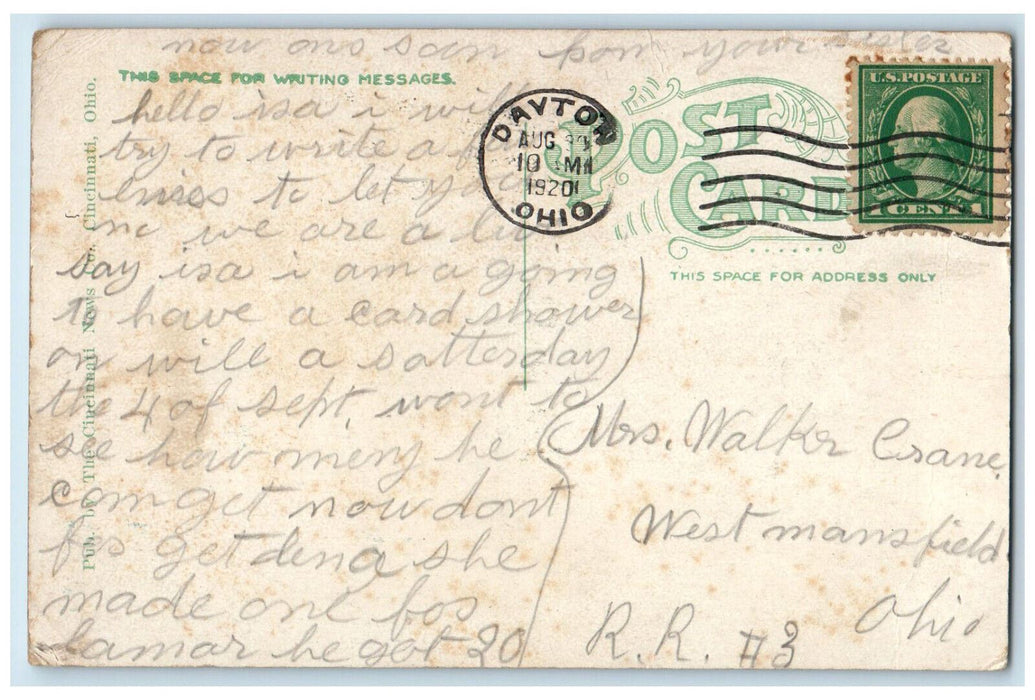 now ans soon from your sister
THIS SPACE FOR WRITING MESSAGES.
hello isa i will
try to write a
lines to let you
no we are a
say isa i am a going
to have a card shower
on will a satterday
the 4 of sept, wont to
see how meny he
can get now dont
for get dena she
made one for
Lamar he got 20
Pub. by The Cincinnati News Co., Cincinnati, Ohio.
DAYTON
AUG
10
1920
OHIO
POST
CARD
U.S. POSTAGE
1 CENT 1
THIS SPACE FOR ADDRESS ONLY
Mrs. Walker Crane,
West mansfield
Ohio
R.R. #3